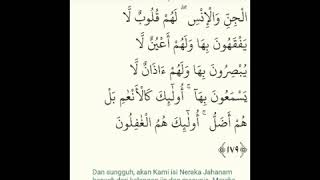 الْجِنِّ وَالْإِنْسِ ۖ لَهُمْ قُلُوبٌ لَّا
يَفْقَهُونَ بِهَا وَلَهُمْ أَعْيُنٌ لَّا
يُبْصِرُونَ بِهَا وَلَهُمْ ءَاذَانٌ لَّا
يَسْمَعُونَ بِهَآ ۚ أُولَٰٓئِكَ كَالْأَنْعَٰمِ بَلْ
هُمْ أَضَلُّ ۚ أُولَٰٓئِكَ هُمُ الْغَٰفِلُونَ
﴿١٧٩﴾
Dan sungguh, akan Kami isi Neraka Jahanam